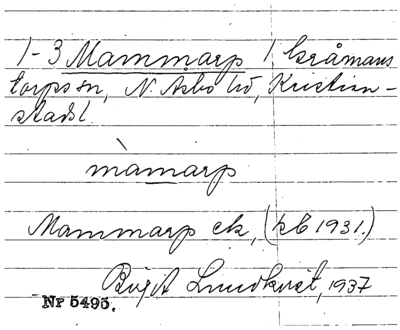 1-3 Mammarp i Gråmans
torps sn, N. Åsbo hd, Kristian-
stads l.
màmarp
Mammarp ek, (kb 1931.)
Birgit Lundkvist, 1937
Nr 5495.